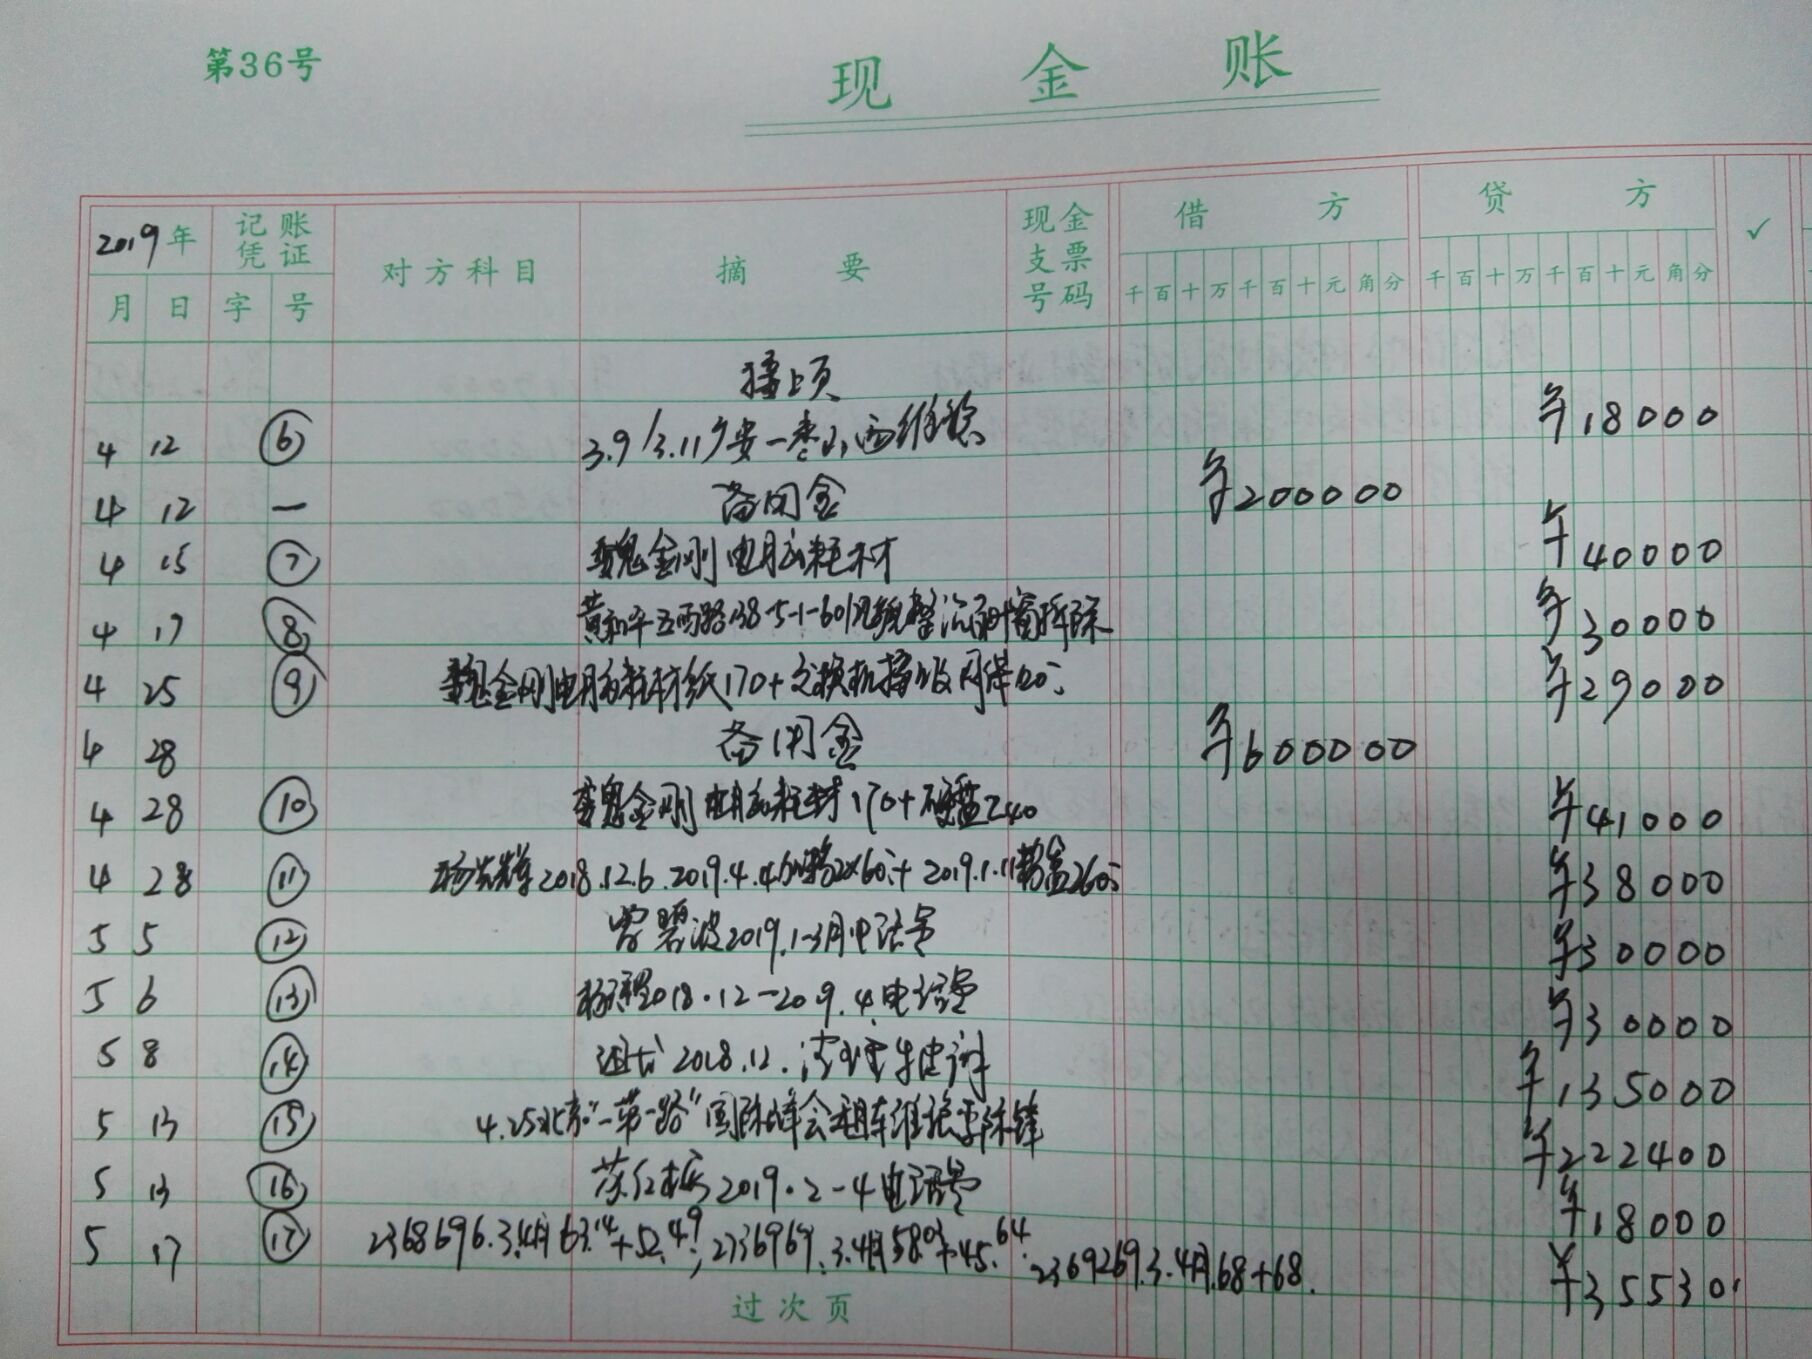 第36号
现金账
2019年 记账凭证 对方科目 摘要 现金支票号码 借方 贷方 ✓
月 日 字 号 千百十万千百十元角分 千百十万千百十元角分
接上页
4 12 ⑥ 3.9/3.11 安一枣 西维稳 ¥18000
4 12 — 备用金 ¥200000
4 15 ⑦ 魏金刚电脑耗材 ¥40000
4 17 ⑧ 黄和平五西路138-5-1-601 拆除 ¥30000
4 25 ⑨ 魏金刚电脑耗材纸170+交换机 网 120元 ¥29000
4 28 备用金 ¥600000
4 28 ⑩ 魏金刚电脑耗材170+硬盘240 ¥41000
4 28 ⑪ 2018.12.6.2019.4.4加粉2×60元+2019.1.11粉盒260元 ¥38000
5 5 ⑫ 碧波2019.1-3月电话费 ¥30000
5 6 ⑬ 2018.12-2019.4电话费 ¥30000
5 8 ⑭ 2018.12. ¥135000
5 13 ⑮ 4.25北京"一带一路"国际峰会租车维稳 锋 ¥222400
5 13 ⑯ 2019.2-4电话费 ¥18000
5 17 ⑰ 2368696.3.4月63.14+52.49, .3.4月58.03+45.64. 2369269.3.4月.68+68. ¥35530
过次页